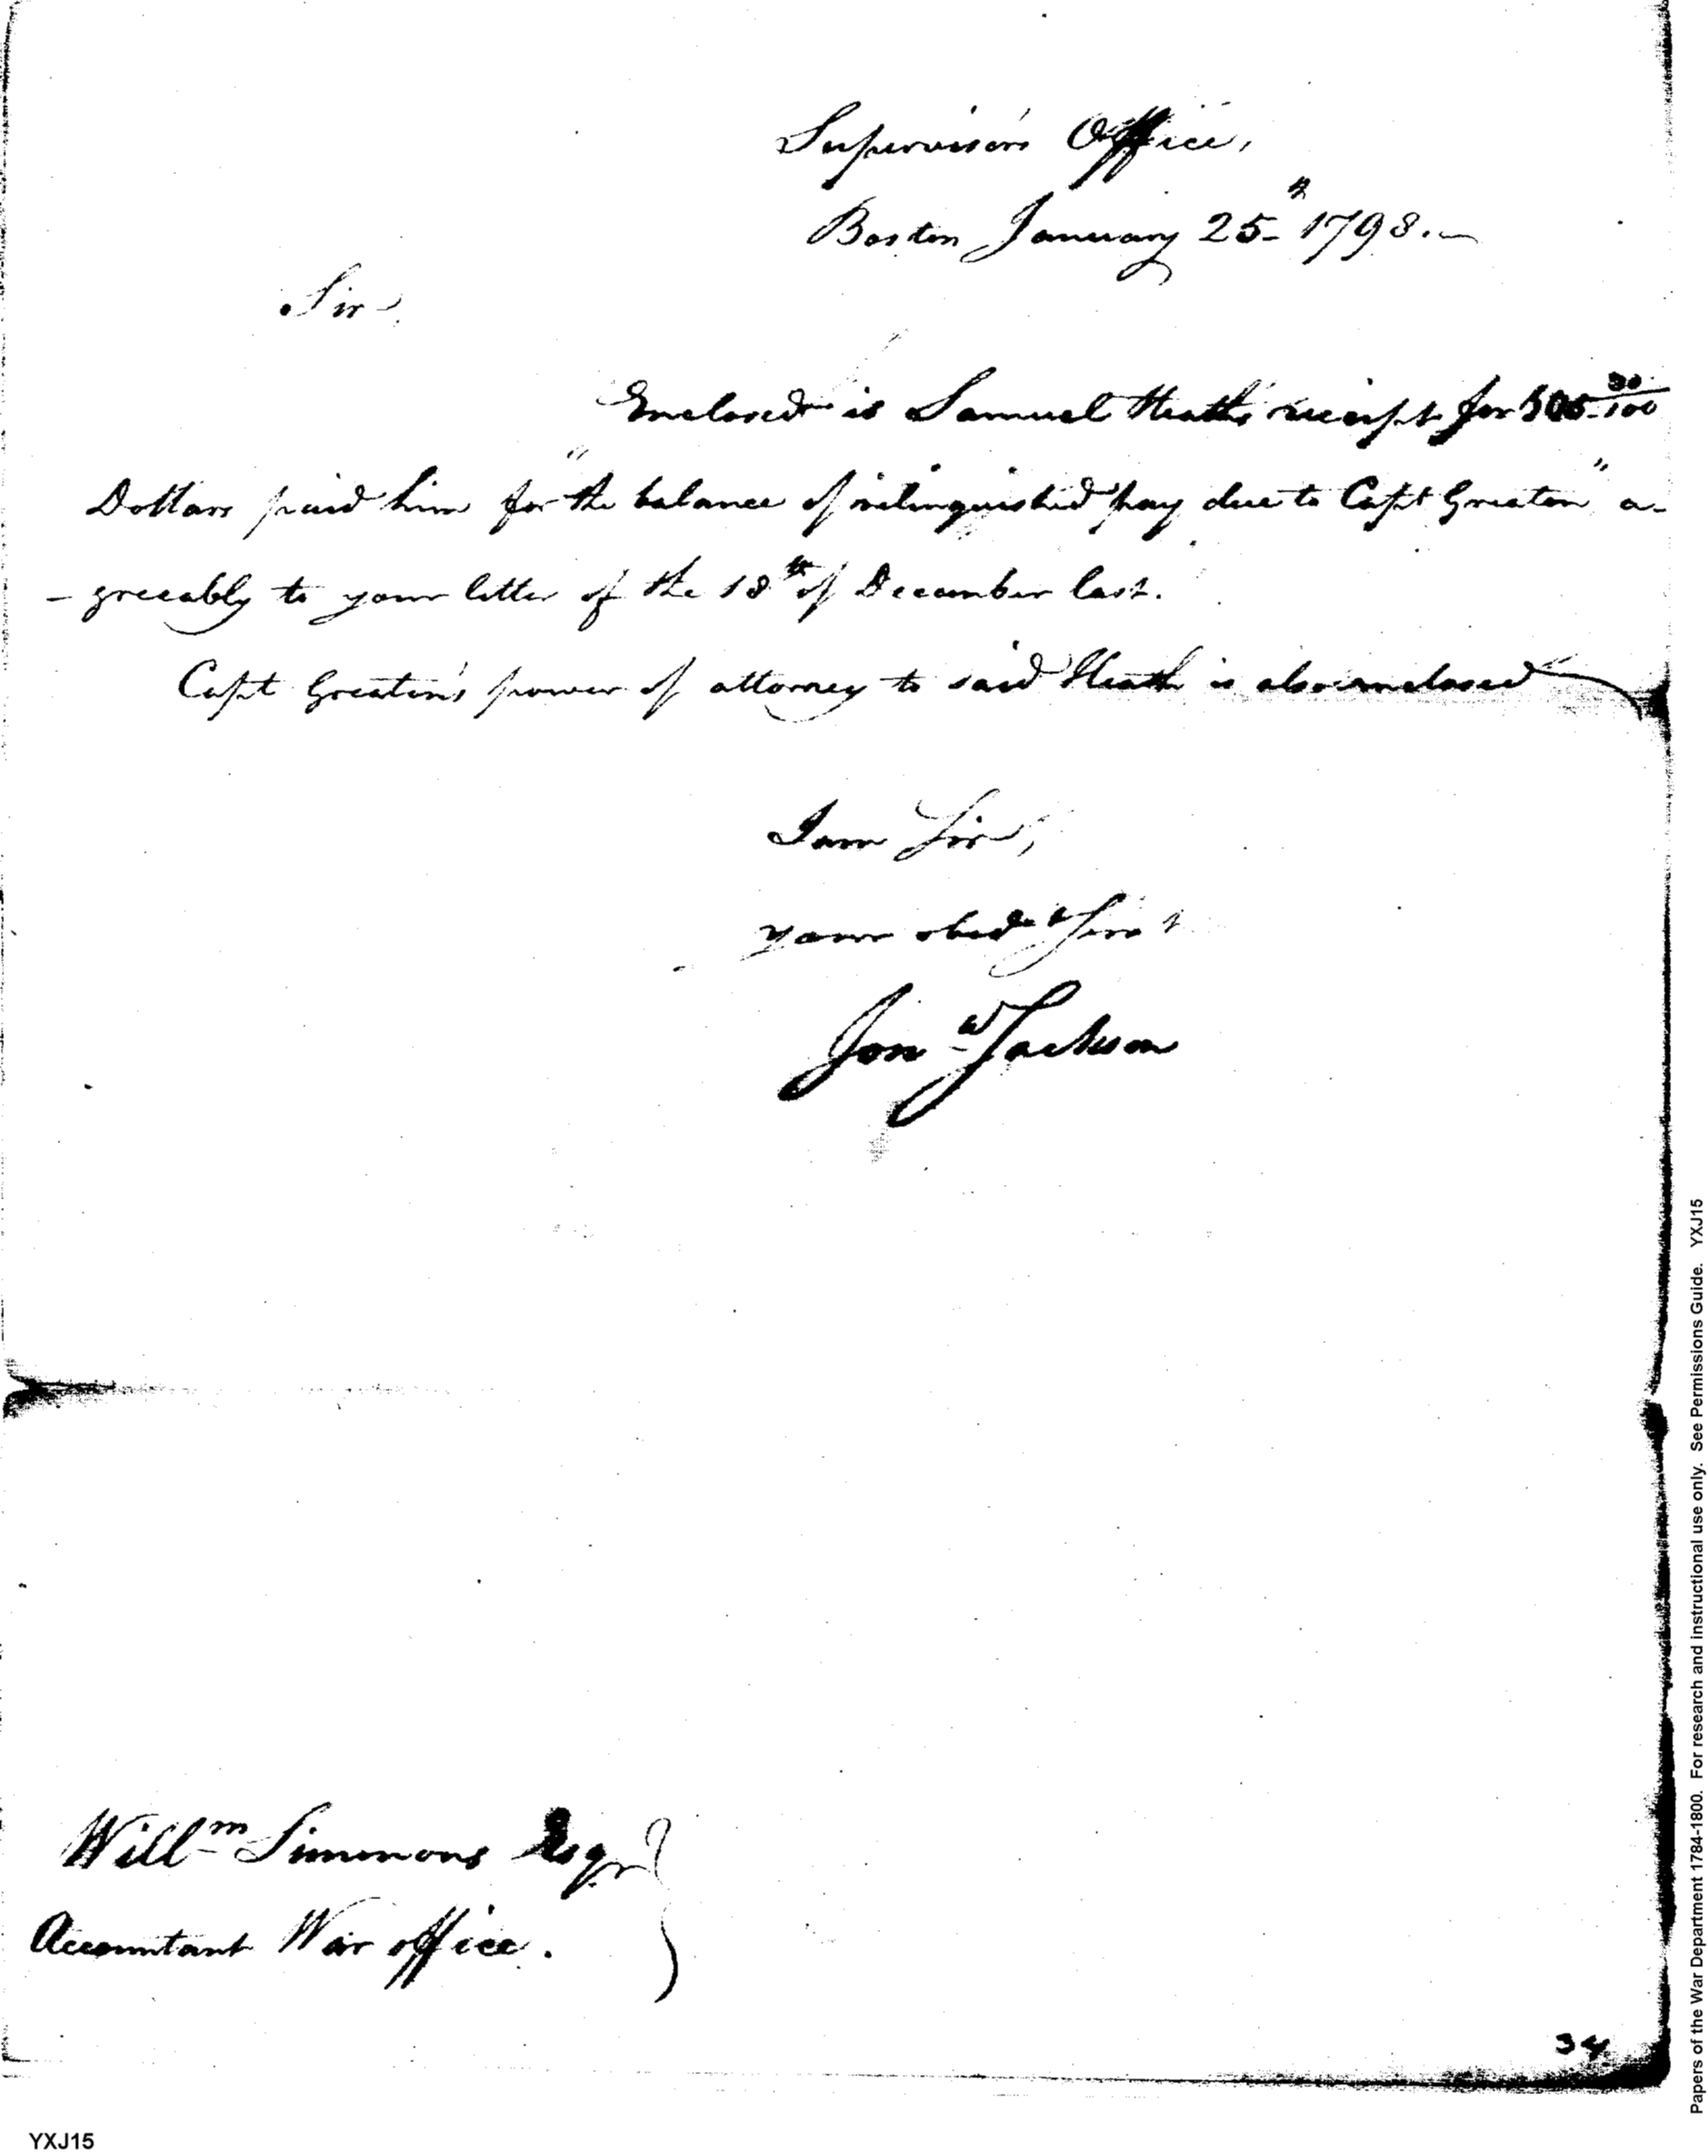 Supervisor's Office,
Boston January 25th 1798.
Sir
Enclosed is Samuel Heath's receipt for 505 30/100
Dollars paid him for "the balance of relinquished pay due to Capt Greaton" a-
-greeably to your letter of the 18th of December last.
Capt Greaton's power of attorney to said Heath is also enclosed
I am Sir,
your obedt Servt
Jona Jackson
Willm Simmons Esqr
Accountant War office.
34
YXJ15
Papers of the War Department 1784-1800. For research and instructional use only. See Permissions Guide. YXJ15